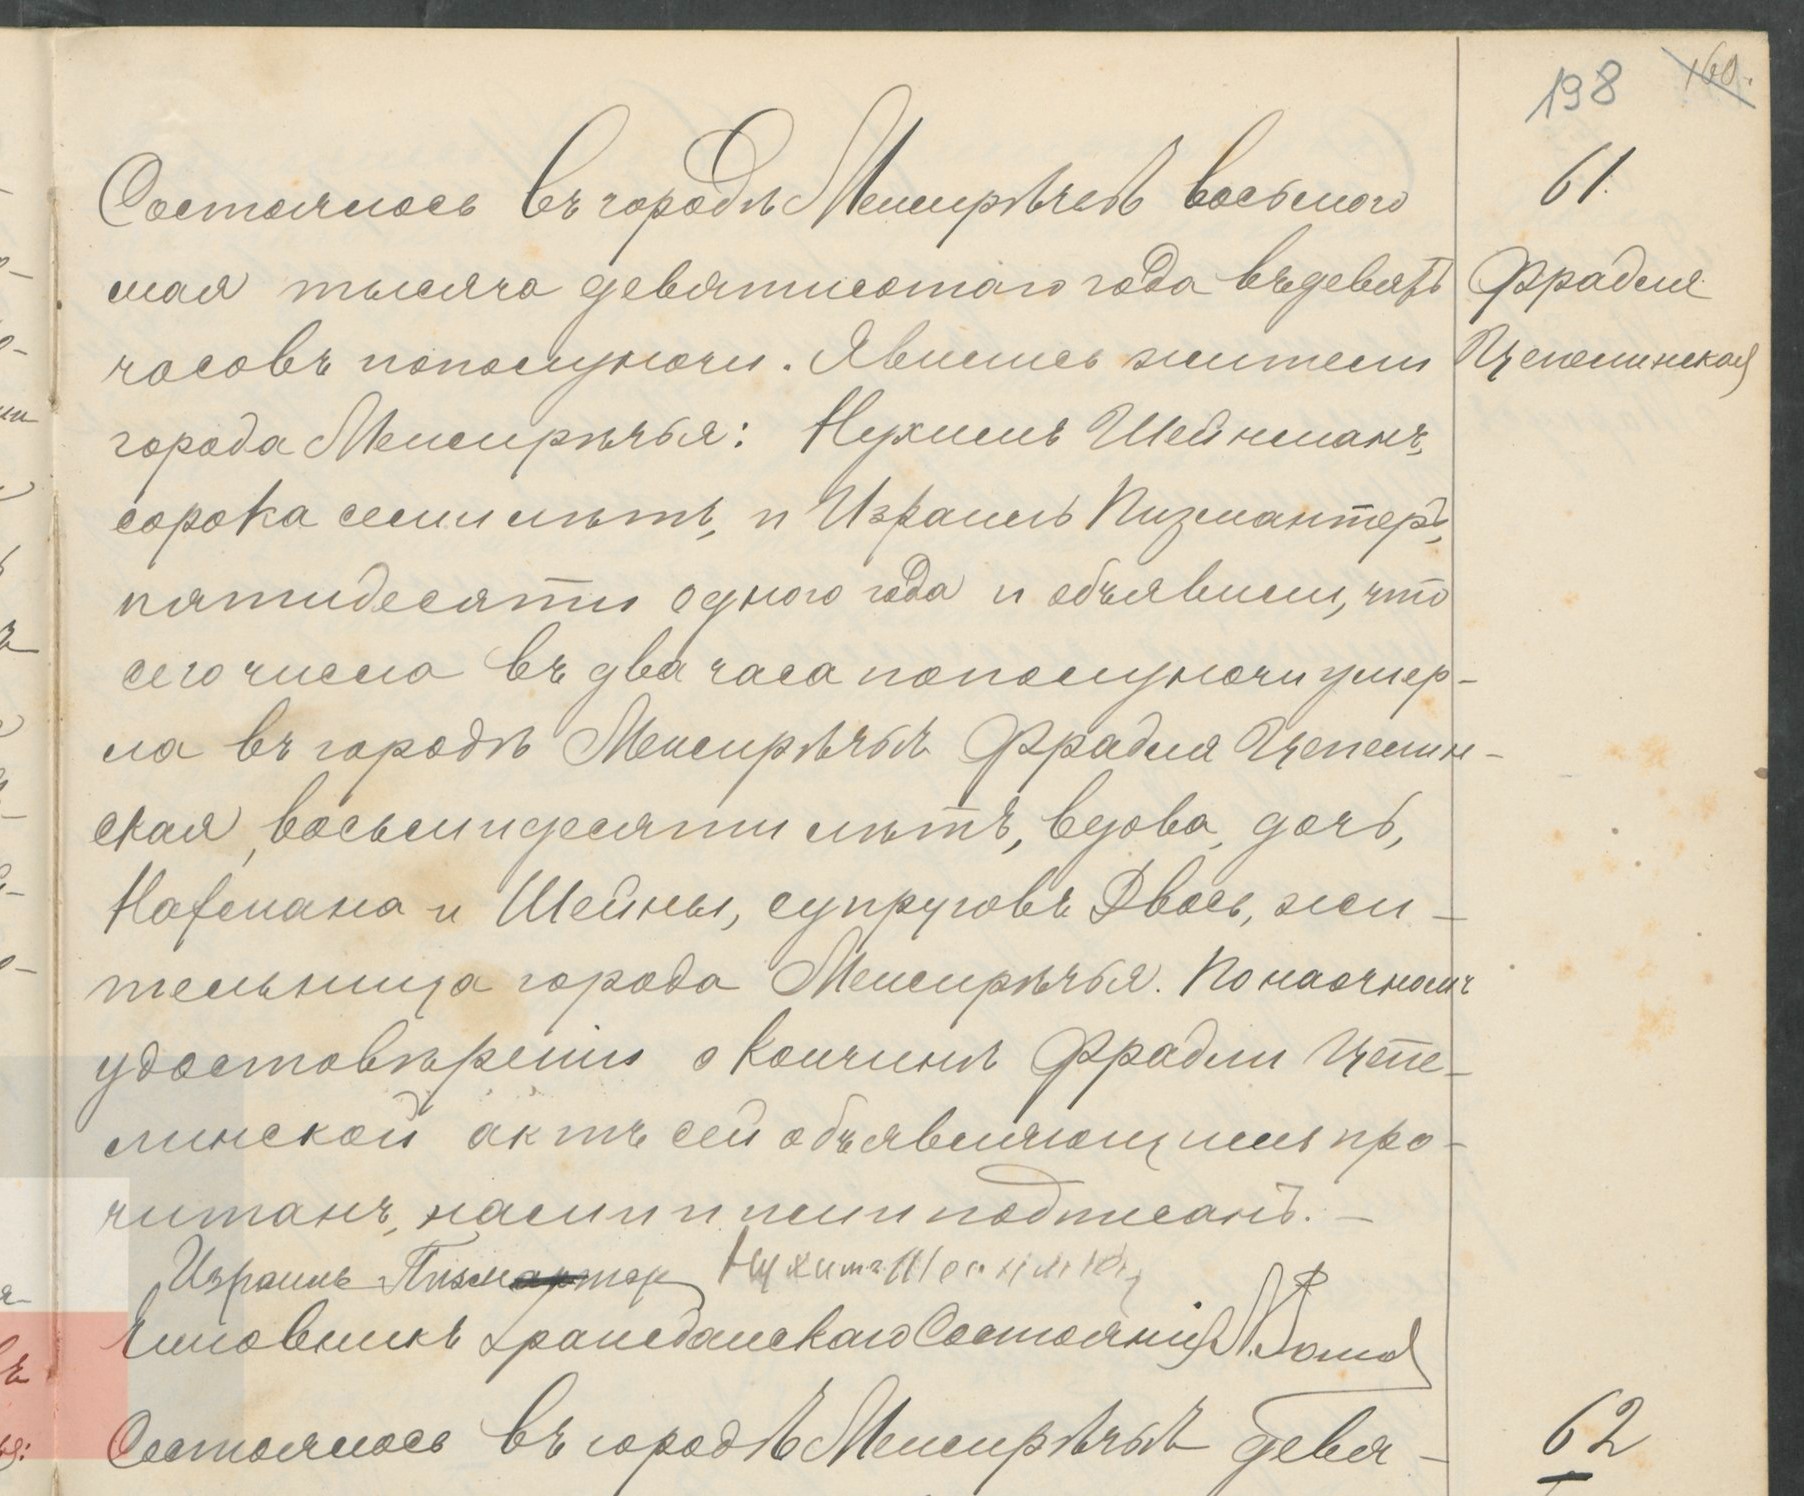 198 160.
61.
Фрадля
Цепелинская
Состоялось въ городѣ Межирѣчьѣ восьмого
мая тысяча девятисотаго года въ девять
часовъ пополуночи. Явились жители
города Межирѣчья: Нухимъ Шейнманъ,
сорока семи лѣтъ, и Израиль Пизмантеръ,
пятидесяти одного года и объявили, что
сего числа въ два часа пополуночи умер-
ла въ городѣ Межирѣчьѣ Фрадля Цепелин-
ская, восьмидесяти лѣтъ, вдова, дочь,
Нафмана и Шейны, супруговъ Двось, жи-
тельница города Межирѣчья. По наочномъ
удостовѣреніи о кончинѣ Фрадли Цепе-
линской актъ сей объявляющимъ про-
читанъ, нами и ими подписанъ. —
Израиль Пизмантер
Чиновникъ Гражданскаго Состоянія
Состоялось въ городѣ Межирѣчьѣ девя-
62